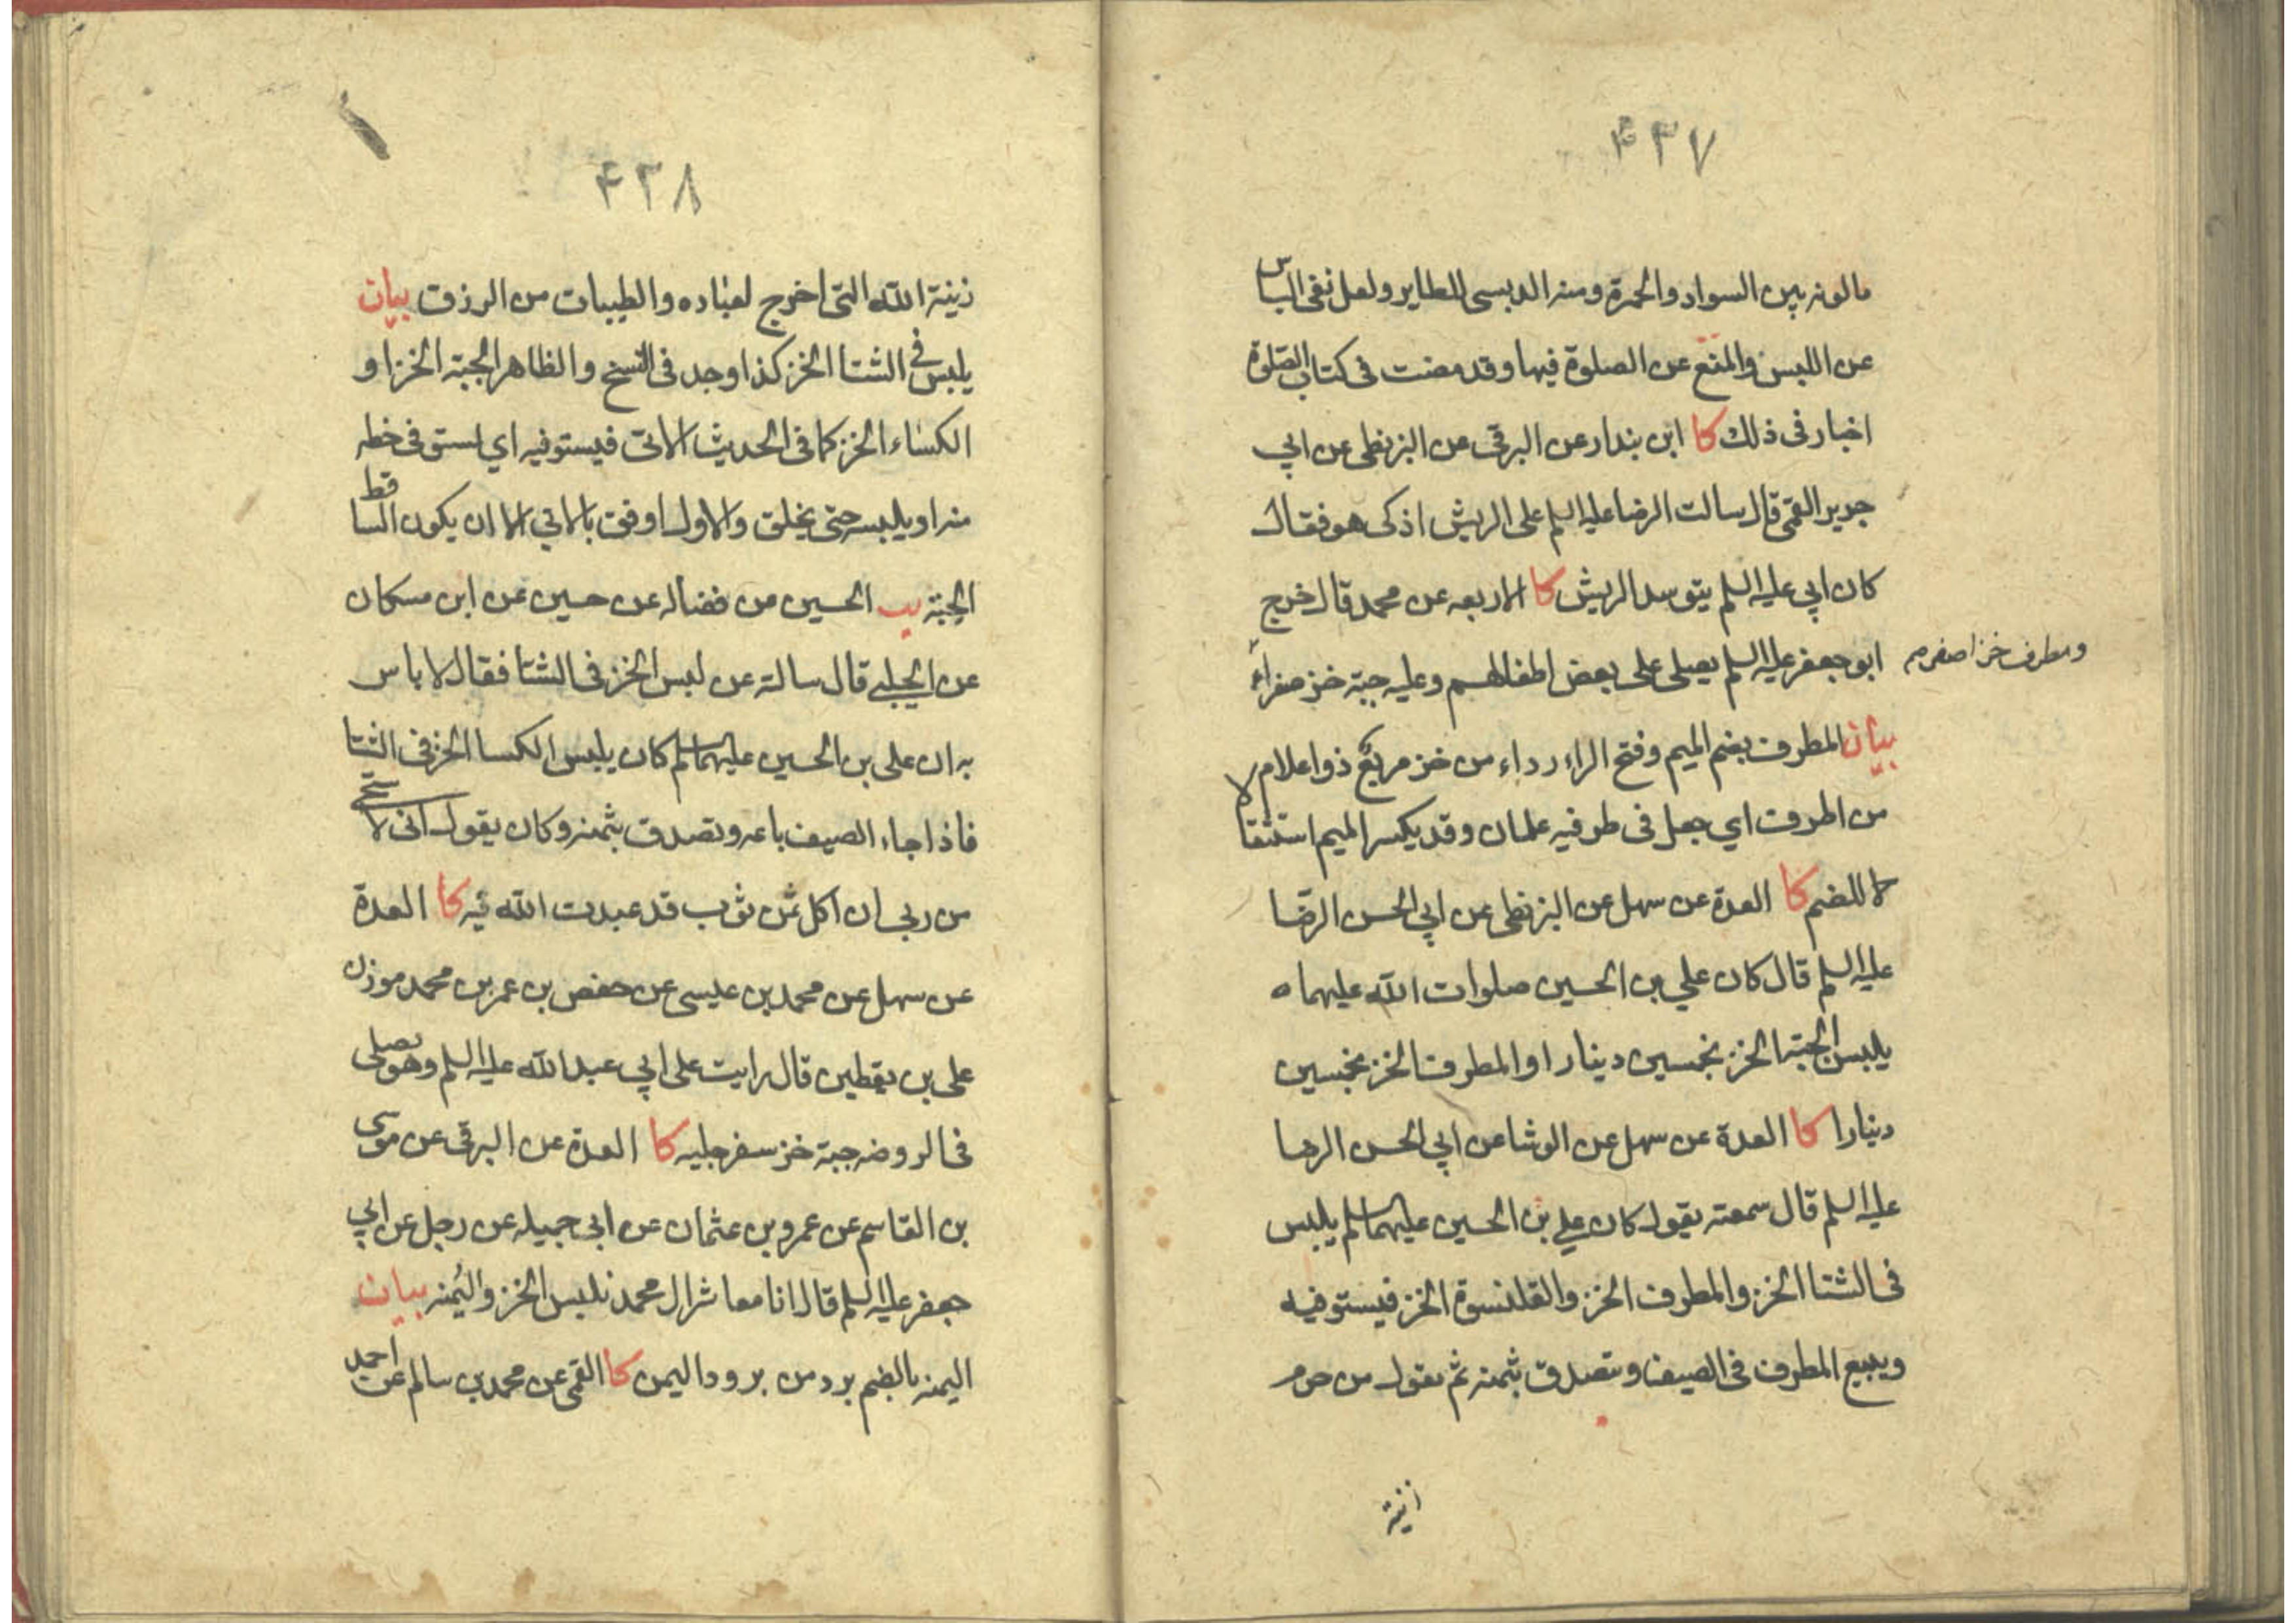 ۴۳۷
ما لونه بين السواد والحمرة ومنه الدبسى للطاير ولعل نفى الباس
عن اللبس والمنع عن الصلوة فيها وقد مضت فى كتاب الصلوة
اخبار فى ذلك كا ابن بندار عن البرقى عن البزنطى عن ابي
جرير القمى قال سالت الرضا عليه السلم على الريش اذكى هو فقال
كان ابي عليه السلم يتوسد الريش كا الاربعه عن محمد قال خرج
ابو جعفر عليه السلم يصلى على بعض اطفالهم وعليه جبة خز صفراء
ومطرف خز اصفر
بيان المطرف بضم الميم وفتح الراء رداء من خز مربع ذو اعلام
من اطرف اي جعل فى طرفيه علمان وقد يكسر الميم استثقا
لا للضم كا العدة عن سهل عن البزنطى عن ابي الحسن الرضا
عليه السلم قال كان علي بن الحسين صلوات الله عليهما
يلبس الجبة الخز بخمسين دينارا والمطرف الخز بخمسين
دينارا كا العدة عن سهل عن الوشا عن ابي الحسن الرضا
عليه السلم قال سمعته يقول كان علي بن الحسين عليهما سلم يلبس
فى الشتا الخز والمطرف الخز والقلنسوة الخز فيستوفيه
ويبيع المطرف فى الصيف ويتصدق بثمنه ثم يقول من حرم
زينة
۴۳۸
زينة الله التى اخرج لعباده والطيبات من الرزق بيان
يلبس فى الشتا الخز كذا وجد فى النسخ والظاهر الجبة الخز او
الكساء الخز كما فى الحديث الاتى فيستوفيه اي يستوفى خطه
منه او يلبسه حتى يخلق والاول اوفق بالاتي الا ان يكون السا قط
الجبة يب الحسين عن فضاله عن حسين عن ابن مسكان
عن الحلبي قال سالته عن لبس الخز فى الشتا فقال لا باس
به ان على بن الحسين عليهما سلم كان يلبس الكسا الخز فى الشتا
فاذا جاء الصيف باعه وتصدق بثمنه وكان يقول انى لاستحي
من ربي ان اكل ثمن ثوب قد عبدت الله فيه كا العدة
عن سهل عن محمد بن عيسى عن حفص بن عمر بن محمد موذن
على بن يقطين قال رايت على ابي عبد الله عليه السلم وهو يصلى
فى الروضه جبة خز سفرجليه كا العدة عن البرقى عن موسى
بن القاسم عن عمرو بن عثمان عن ابى جميله عن رجل عن ابي
جعفر عليه السلم قال انا معاشر ال محمد نلبس الخز واليمنه بيان
اليمنه بالضم برد من برود اليمن كا القمى عن محمد بن سالم عن احمد